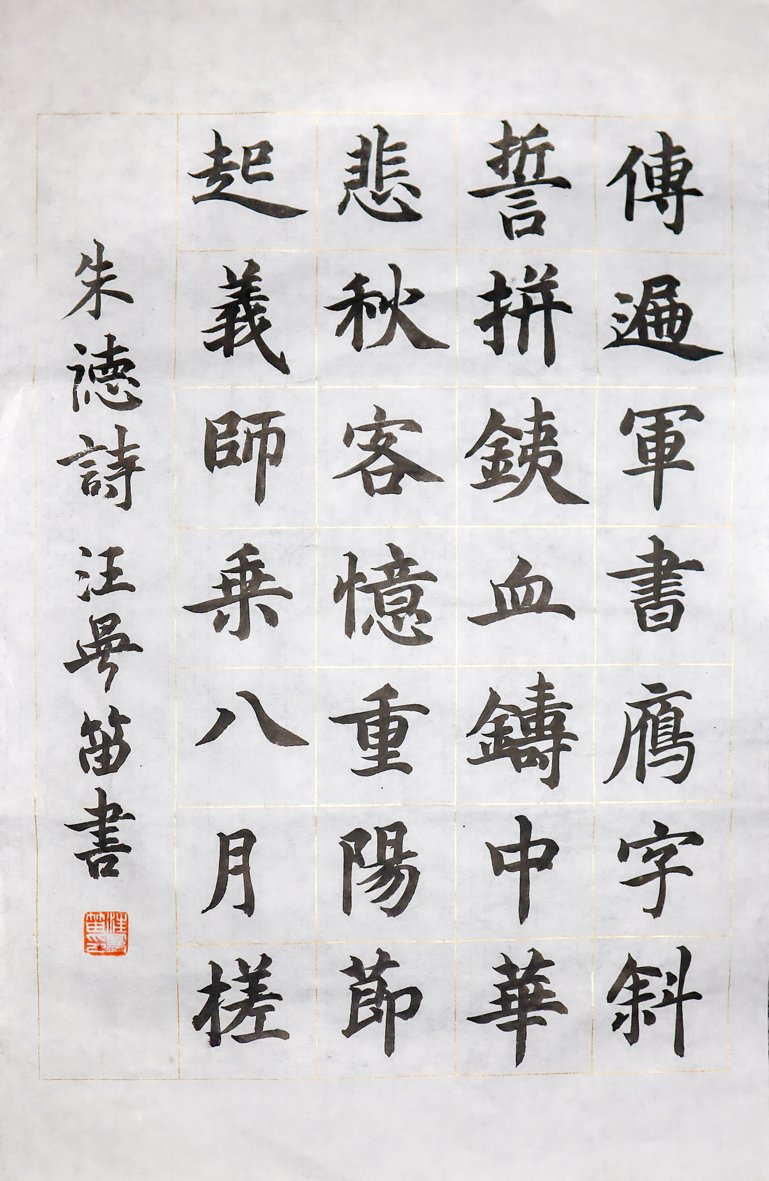 傳遍軍書鴈字斜
誓拼銕血鑄中華
悲秋客憶重陽節
起義師乗八月槎
朱德詩 汪笛書